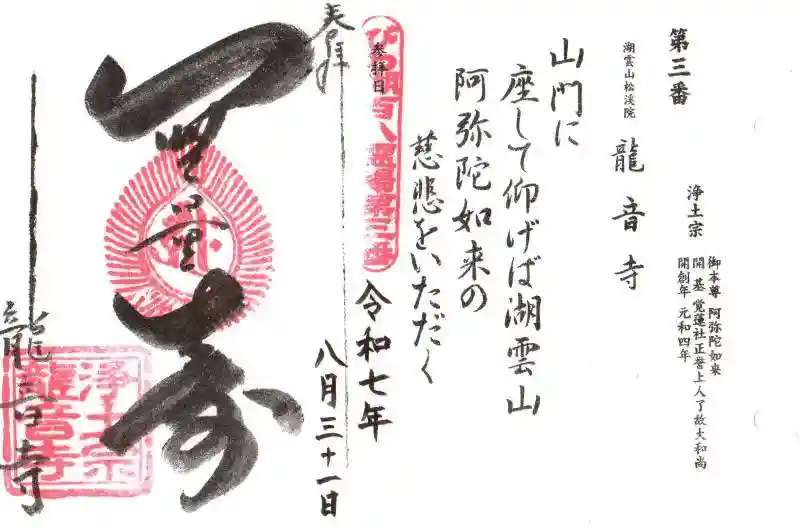 第三番
湖雲山松渓院
龍音寺
浄土宗
御本尊 阿弥陀如来
開基 覚蓮社正誉上人了故大和尚
開創年 元和四年
山門に
座して仰げば湖雲山
阿弥陀如来の
慈悲をいただく
参拝日
びわ湖百八霊場第三番
令和七年
八月三十一日
奉拝
無量寿
浄土宗
龍音寺
龍音寺